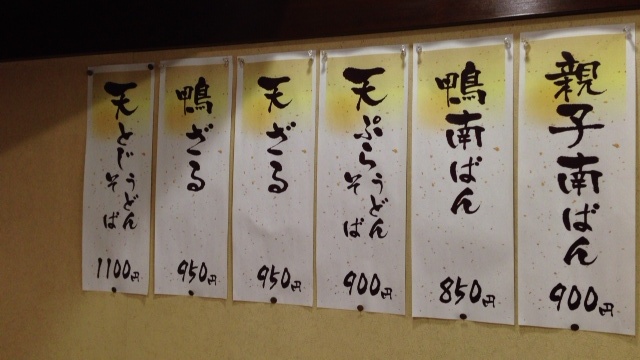 親子南ばん
900円
鴨南ばん
850円
天ぷらうどん
そば
900円
天ざる
950円
鴨ざる
950円
天とじうどん
そば
1100円